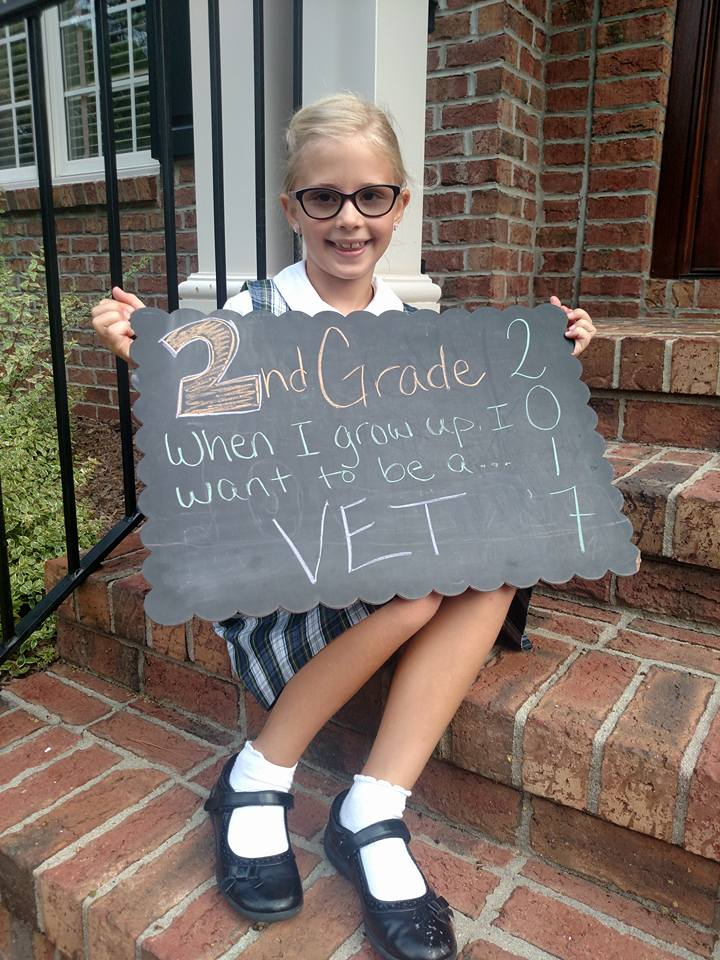 2nd Grade
When I grow up, I
want to be a....
VET
2
0
1
7